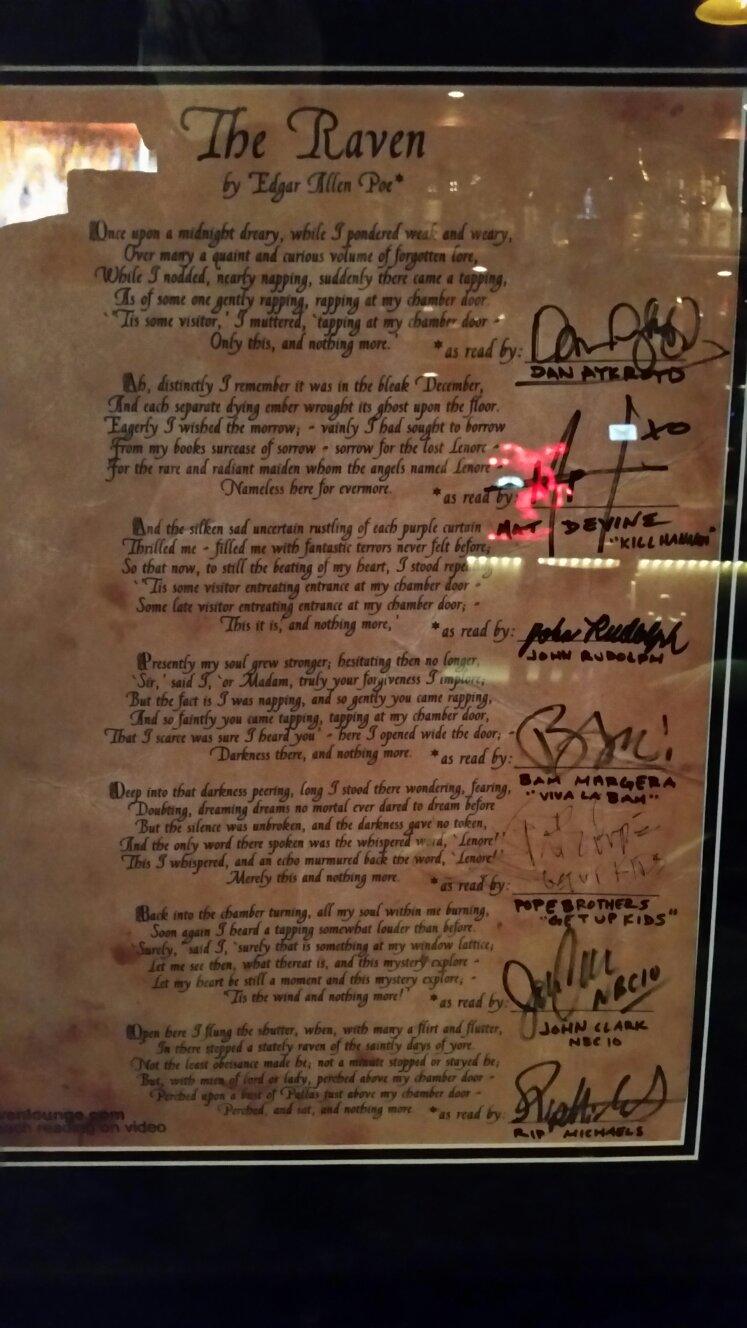 The Raven
by Edgar Allen Poe*
Once upon a midnight dreary, while I pondered weak and weary,
Over many a quaint and curious volume of forgotten lore,
While I nodded, nearly napping, suddenly there came a tapping,
As of some one gently rapping, rapping at my chamber door.
`'Tis some visitor,' I muttered, `tapping at my chamber door -
Only this, and nothing more.'
*as read by:
DAN AYKROYD
Ah, distinctly I remember it was in the bleak December,
And each separate dying ember wrought its ghost upon the floor.
Eagerly I wished the morrow; - vainly I had sought to borrow
From my books surcease of sorrow - sorrow for the lost Lenore -
For the rare and radiant maiden whom the angels named Lenore -
Nameless here for evermore.
XO
*as read by:
MAT DEVINE
"KILL HANNAH"
And the silken sad uncertain rustling of each purple curtain
Thrilled me - filled me with fantastic terrors never felt before;
So that now, to still the beating of my heart, I stood
`'Tis some visitor entreating entrance at my chamber door -
Some late visitor entreating entrance at my chamber door; -
This it is, and nothing more,'
*as read by: John Rudolph
JOHN RUDOLPH
Presently my soul grew stronger; hesitating then no longer,
`Sir,' said I, `or Madam, truly your forgiveness I implore;
But the fact is I was napping, and so gently you came rapping,
And so faintly you came tapping, tapping at my chamber door,
That I scarce was sure I heard you' - here I opened wide the door; -
Darkness there, and nothing more.
*as read by: BAM!
BAM MARGERA
"VIVA LA BAM"
Deep into that darkness peering, long I stood there wondering, fearing,
Doubting, dreaming dreams no mortal ever dared to dream before
But the silence was unbroken, and the darkness gave no token,
And the only word there spoken was the whispered word, `Lenore!'
This I whispered, and an echo murmured back the word, `Lenore!'
Merely this and nothing more.
*as read by:
POPE BROTHERS
"GET UP KIDS"
Back into the chamber turning, all my soul within me burning,
Soon again I heard a tapping somewhat louder than before.
`Surely,' said I, `surely that is something at my window lattice;
Let me see then, what thereat is, and this mystery explore -
Let my heart be still a moment and this mystery explore; -
'Tis the wind and nothing more!'
*as read by:
NBC10
JOHN CLARK
NBC 10
Open here I flung the shutter, when, with many a flirt and flutter,
In there stopped a stately raven of the saintly days of yore.
Not the least obeisance made he; not a minute stopped or stayed he;
But, with mien of lord or lady, perched above my chamber door -
Perched upon a bust of Pallas just above my chamber door -
Perched, and sat, and nothing more.
*as read by:
RIP MICHAELS
venlounge.com
ach reading on video